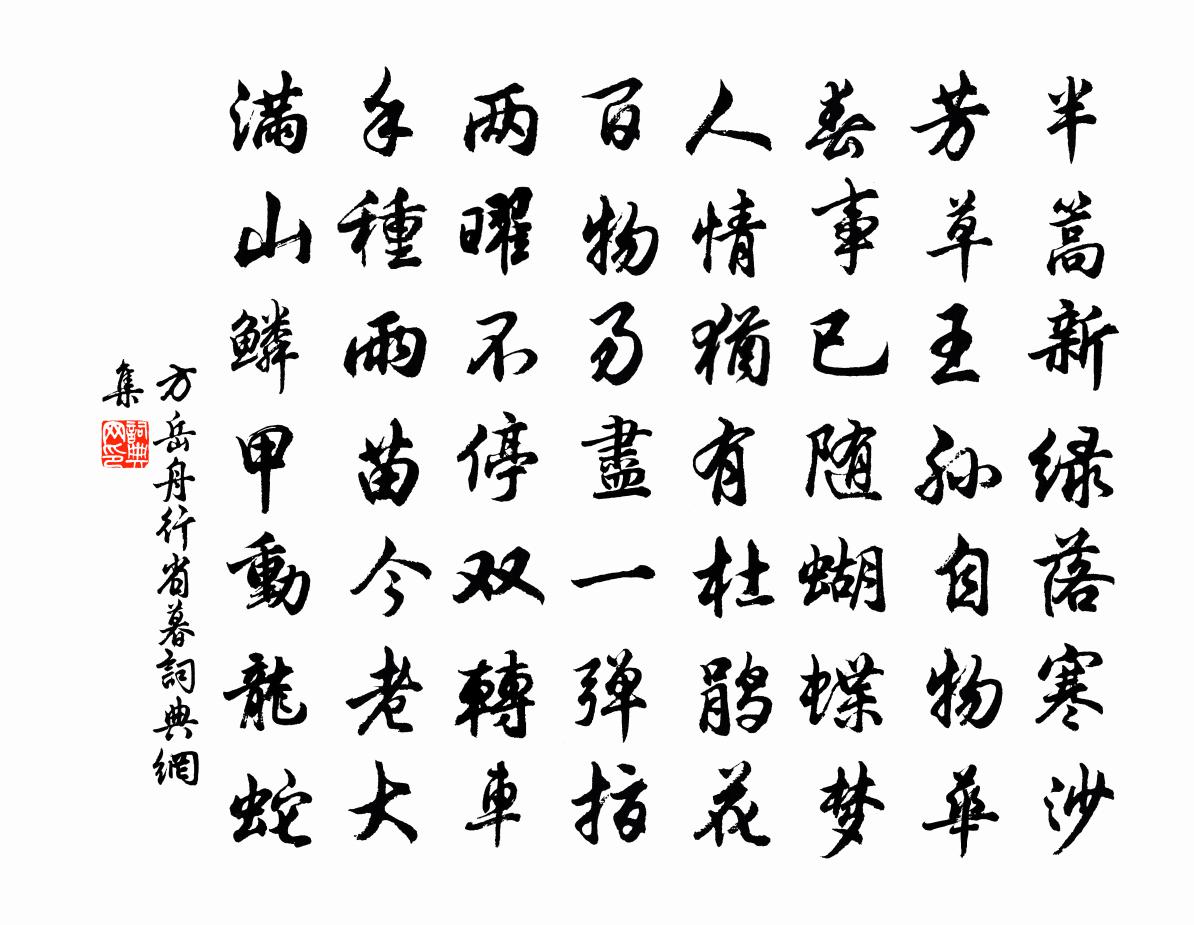 半篙新绿落寒沙
芳草王孙自物華
春事已随蝴蝶梦
人情猶有杜鹃花
百物易盡一弹指
两曜不停双轉車
手種雨苗今老大
满山鱗甲動龍蛇
方岳舟行省暮詞典網
集
詞典网印